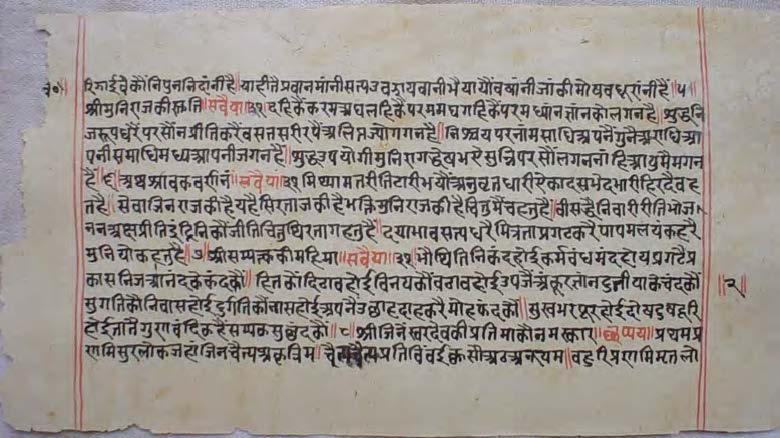 रिझाईवेकौंनिपुननिदांनीहै॥याहीतैप्रवानमांनीसत्पउवझायवानीभैयायौंवषांनीजांकीमोषवधूरांनींहैं॥५
श्रीमुनिराजकीस्तुति॥सवैया॥३१दहिकैंकरमअघलहिकैंपरममघगहिकैंपरमध्यांनज्ञांनकीलगनहै॥शुद्धनि
जरूपधरैंपरसौंनप्रीतिकरैंवसतसरीरपैंअलिप्तज्योंगगनहैं॥निश्चयपरनांमसाधिअपनैंगुनैंअराधिआ
पनीसमाधिमध्यआपनीजगनहैं॥शुद्धउपयोगीमुनिरागद्वेषभएसुन्निपरसौंलगननांहिआपुमेंमगन
हैं॥६॥अथश्रावकवरनंन॥सवैया॥३१मिथ्यामतरीतिटारीभयौंअनुव्रतधारीऐकादसभेदभारीहिरदैवह
तहै॥सेवाजिनराजकीहैयहैसिरताजकीहैभक्तिमुनिराजकीहैचित्तमैंचहतुहैं॥वीसद्वैनिवारीरीतिभोज
ननअक्षप्रीतिइंद्रिनिकौंजीतिचित्तथिरतागहतुहैं॥दयाभावसत्यधरैंमित्रताप्रगटकरैंपापमलपंकहरैं
मुनियौंकहतुहैं॥७॥श्रीसम्यक्तकीमहिमा॥सवैया॥३१भौथितिनिकंदहोईकर्मवंधमंदहोयप्रगटैप्र
काशनिजआनंदकेकंदकौं॥हितकौंदिढावहोईविनयकौंवढावहोईउपजैंअंकूरज्ञांनदुतीयाकेचंदकौं
सुगतिकौनिवासहोईदुर्गतिकौंनासहोईअपनैंउछाहदाहकरैंमोहफंदकौं॥सुषभरपूरहोईदोषदुषदूरि
होईतातैंगुणवृंदकहैंसम्यकसुछंदकौं॥८॥श्रीजिनेंस्वरदेवकीप्रतिमाकौनमस्कार॥छप्पय॥प्रथमप्र
णमिसुरलोकजहांजिनचैत्यअकृत्रिम॥चैत्यचैत्यप्रतिविंवईकसौंआठअनुपम॥वहुरिप्रणमिमृतलो
॥२